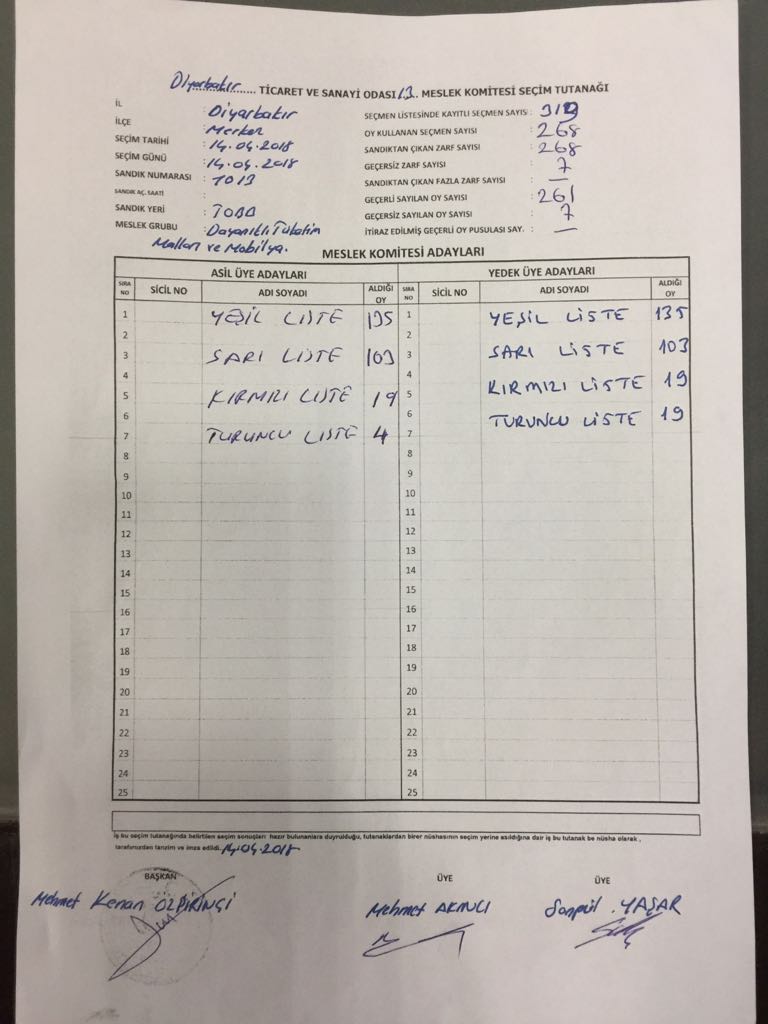 Diyarbakır...... TİCARET VE SANAYİ ODASI 13.. MESLEK KOMİTESİ SEÇİM TUTANAĞI
İL : Diyarbakır
İLÇE : Merkez
SEÇİM TARİHİ : 14.04.2018
SEÇİM GÜNÜ : 14.04.2018
SANDIK NUMARASI : 1013
SANDIK AÇ. SAATİ :
SANDIK YERİ : TOBB
MESLEK GRUBU : Dayanıklı Tüketim
Malları ve Mobilya.
SEÇMEN LİSTESİNDE KAYITLI SEÇMEN SAYISI :
OY KULLANAN SEÇMEN SAYISI : 268
SANDIKTAN ÇIKAN ZARF SAYISI : 268
GEÇERSİZ ZARF SAYISI : 7
SANDIKTAN ÇIKAN FAZLA ZARF SAYISI : —
GEÇERLİ SAYILAN OY SAYISI : 261
GEÇERSİZ SAYILAN OY SAYISI : 7
İTİRAZ EDİLMİŞ GEÇERLİ OY PUSULASI SAY. : —
MESLEK KOMİTESİ ADAYLARI
ASİL ÜYE ADAYLARI
SIRA NO SİCİL NO ADI SOYADI ALDIĞI OY
1 YEŞİL LİSTE 135
2
3 SARI LİSTE 103
4
5 KIRMIZI LİSTE 19
6
7 TURUNCU LİSTE 4
8
9
10
11
12
13
14
15
16
17
18
19
20
21
22
23
24
25
YEDEK ÜYE ADAYLARI
SIRA NO SİCİL NO ADI SOYADI ALDIĞI OY
1 YEŞİL LİSTE 135
2
3 SARI LİSTE 103
4
5 KIRMIZI LİSTE 19
6
7 TURUNCU LİSTE 19
8
9
10
11
12
13
14
15
16
17
18
19
20
21
22
23
24
25
İş bu seçim tutanağında belirtilen seçim sonuçları hazır bulunanlara duyrulduğu, tutanaklardan birer nüshasının seçim yerine asıldığına dair iş bu tutanak be nüsha olarak ,
tarafımızdan tanzim ve imza edildi. 14.04.2018
BAŞKAN
Mehmet Kenan ÖZPİRİNÇİ
ÜYE
Mehmet AKINCI
ÜYE
YAŞAR